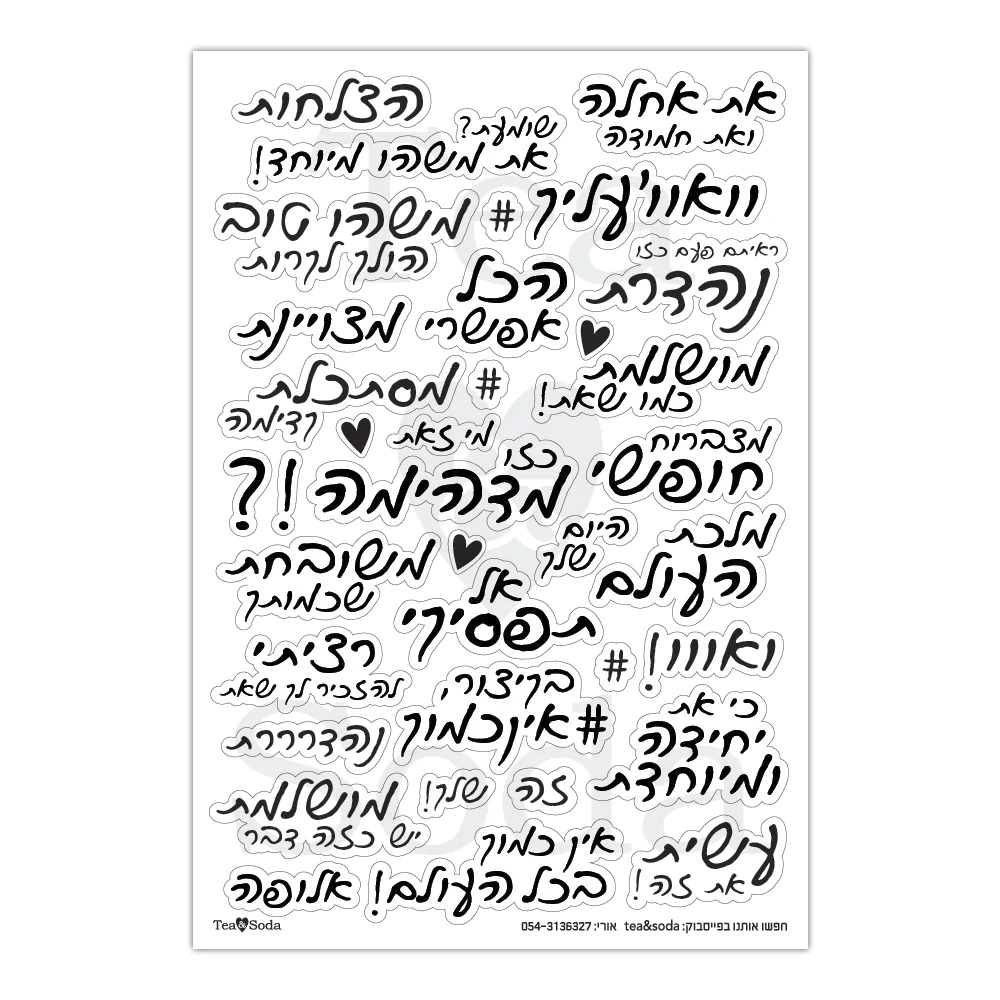 את אחלה
ואת חמודה
הצלחות
שומעת?
את משהו מיוחד!
וואוו'עליך
#
משהו טוב
הולך לקרות
ראיתם פעם כזו
נהדרת
הכל
אפשרי
מצויינת
מושלמת
כמו שאת!
#
מסתכלת
קדימה
מי זאת
כזו
מדהימה
!?
מצברוח
חופשי
היום
שלך
מלכת
העולם
משובחת
שכמותך
אל
תפסיקי
ואווו!
#
רציתי
להזכיר לך שאת
בקיצור,
#אינכמוך
כי את
יחידה
ומיוחדת
נהדרררת
זה שלך!
מושלמת
יש כזה דבר
אין כמוך
בכל העולם!
ענשית
את זה!
אלופה
Tea
Soda
חפשו אותנו בפייסבוק: tea&soda אורי: 054-3136327
Tea&Soda